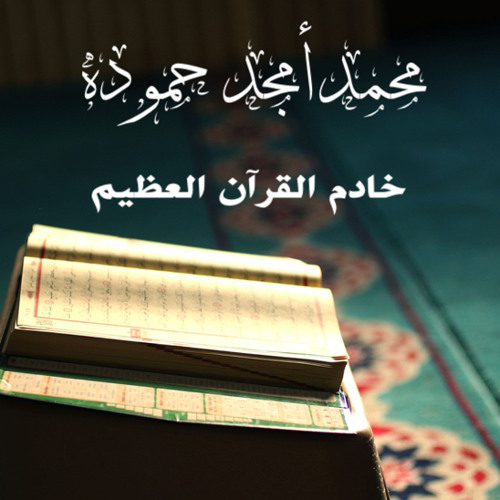 محمد أمجد حموده
خادم القرآن العظيم